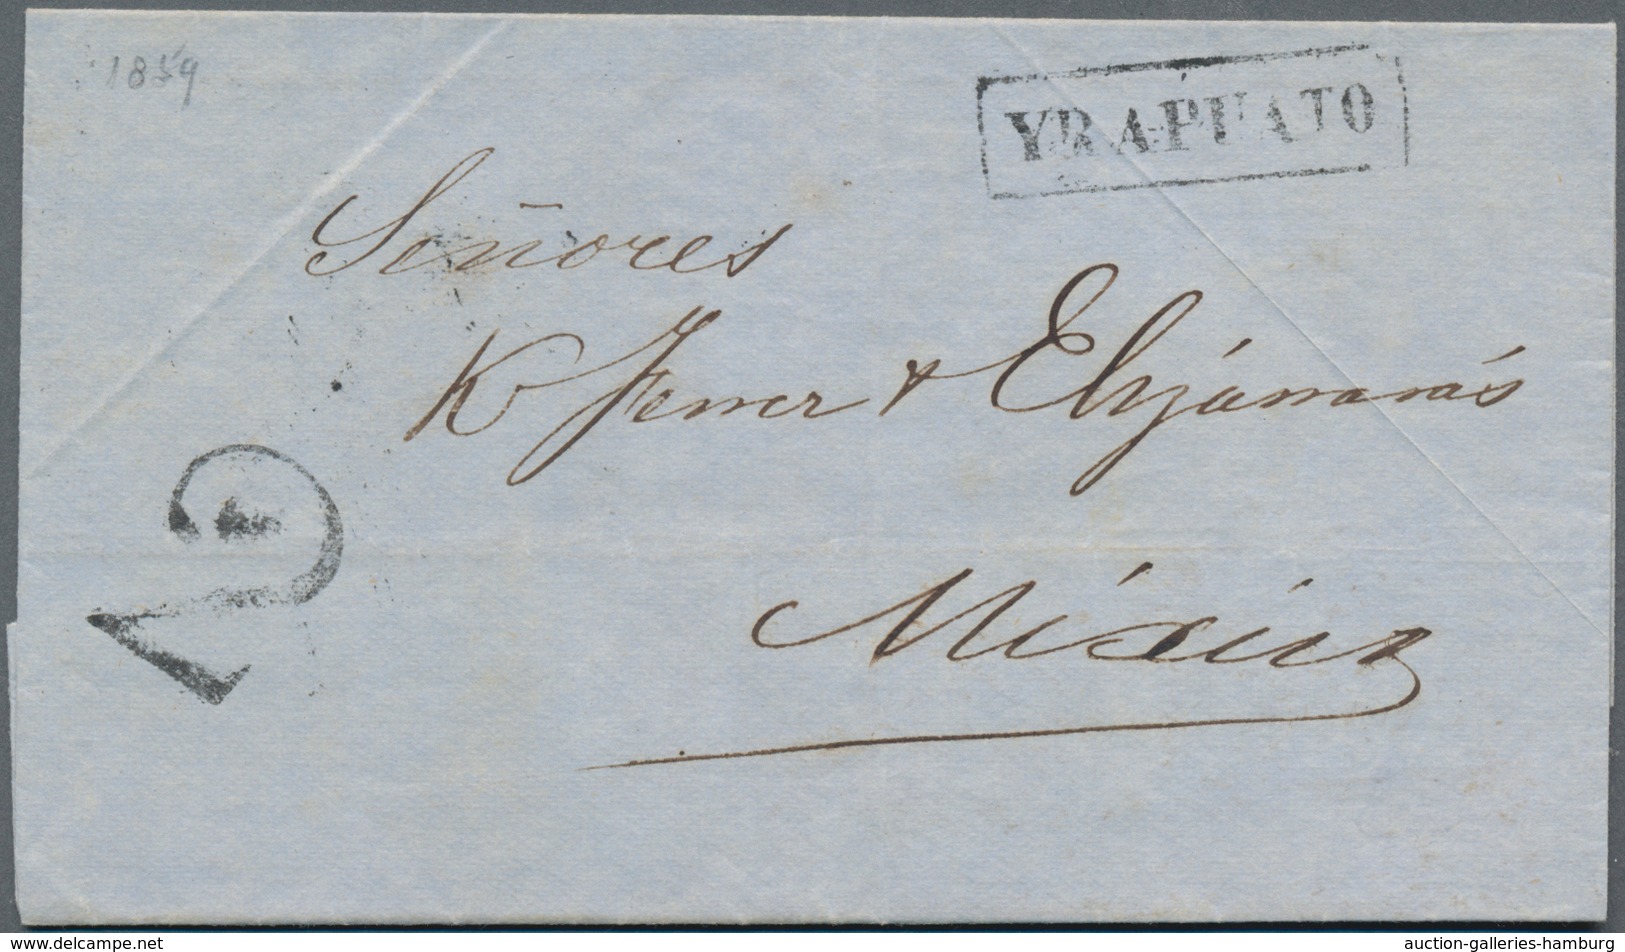 1859
YRAPUATO
Señores
K Jenner &
2
México
www.delcampe.net
auction-galleries-hamburg